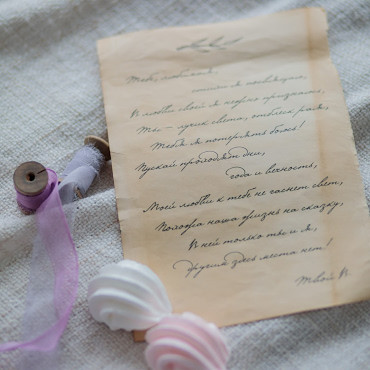 Тебе, любимый,
стихи я посвящаю,
В любви своей я искренне признаюсь,
Ты - лучик света,
Тебя я потерять боюсь!
Пускай проходят дни,
года и вечность,
Моей любви к тебе не гаснет свет,
Похожа наша жизнь на сказку,
В ней только ты и я,
Другим здесь места нет!
Твой В.